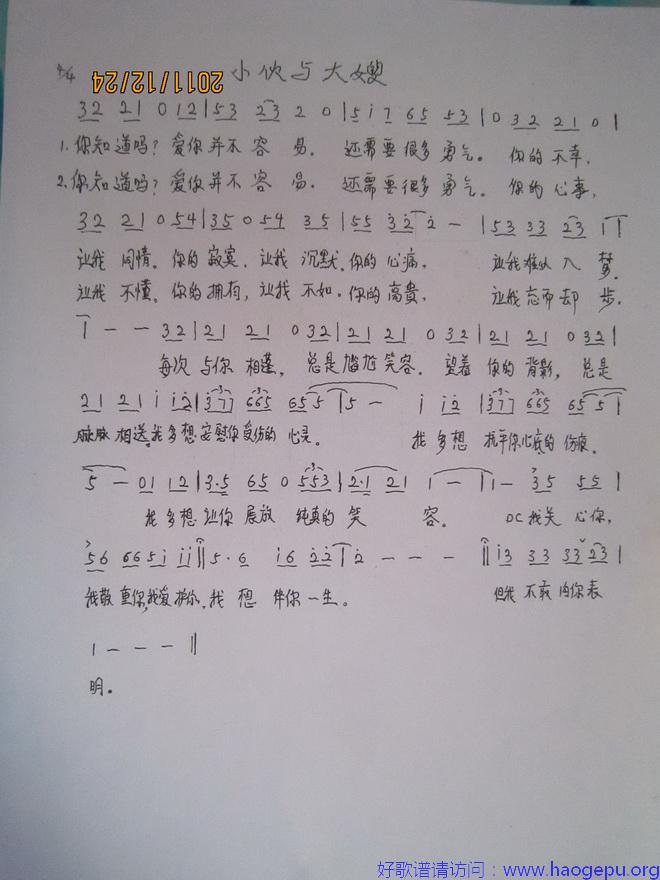 4/4 2011/12/24 小伙与大嫂
32 21 0 12 | 53 23 2 0 | 5 i 7 65 53 | 0 32 21 0 |
1. 你知道吗? 爱你并不容易. 还需要很多勇气。 你的不幸,
2. 你知道吗? 爱你并不容易. 还需要很多勇气。 你的心事,
32 21 0 54 | 35 0 54 35 | 55 32 2 - | 53 33 23 1 |
让我同情。你的寂寞, 让我沉默. 你的心痛, 让我难以入梦.
让我不懂。你的拥有, 让我不如. 你的高贵, 让我忘而却步.
1 - - 32 | 21 21 0 32 | 21 21 0 32 | 21 21 0 32 |
每次与你相逢, 总是尴尬笑容. 望着你的背影, 总是
21 21 i i2 | 377 665 65 5 | 5 - i i2 | 377 665 65 5 |
脉脉相送. 我多想安慰你受伤的心灵。 我多想抚平你心底的伤痕.
5 - 01 12 | 3·5 65 0 553 | 2·1 21 1 - | 1 - 35 55 |
我多想让你展放纯真的笑容. DC 我关心你,
56 665 i ii || 5·6 i6 22 | 2 - - - || i3 33 33 23 |
我敬重你, 我爱护你. 我想伴你一生。 但我不敢向你表
1 - - - ||
明。
好歌谱请访问：www.haogepu.org